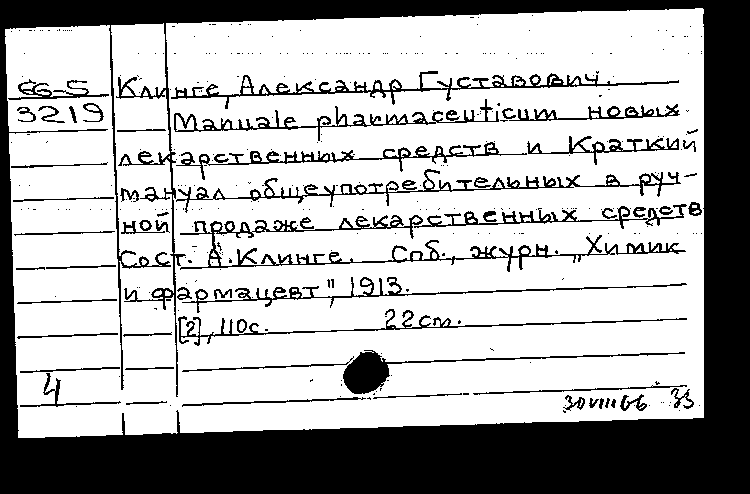 66-5 Клинге, Александр Густавович.
3219 Manuale pharmaceuticum новых
лекарственных средств и Краткий
мануал общеупотребительных в руч-
ной продаже лекарственных средств
Сост. А.Клинге. Спб., журн. „Химик
и фармацевт", 1913.
[2], 110с. 22см.
4
30 VIII 66 33